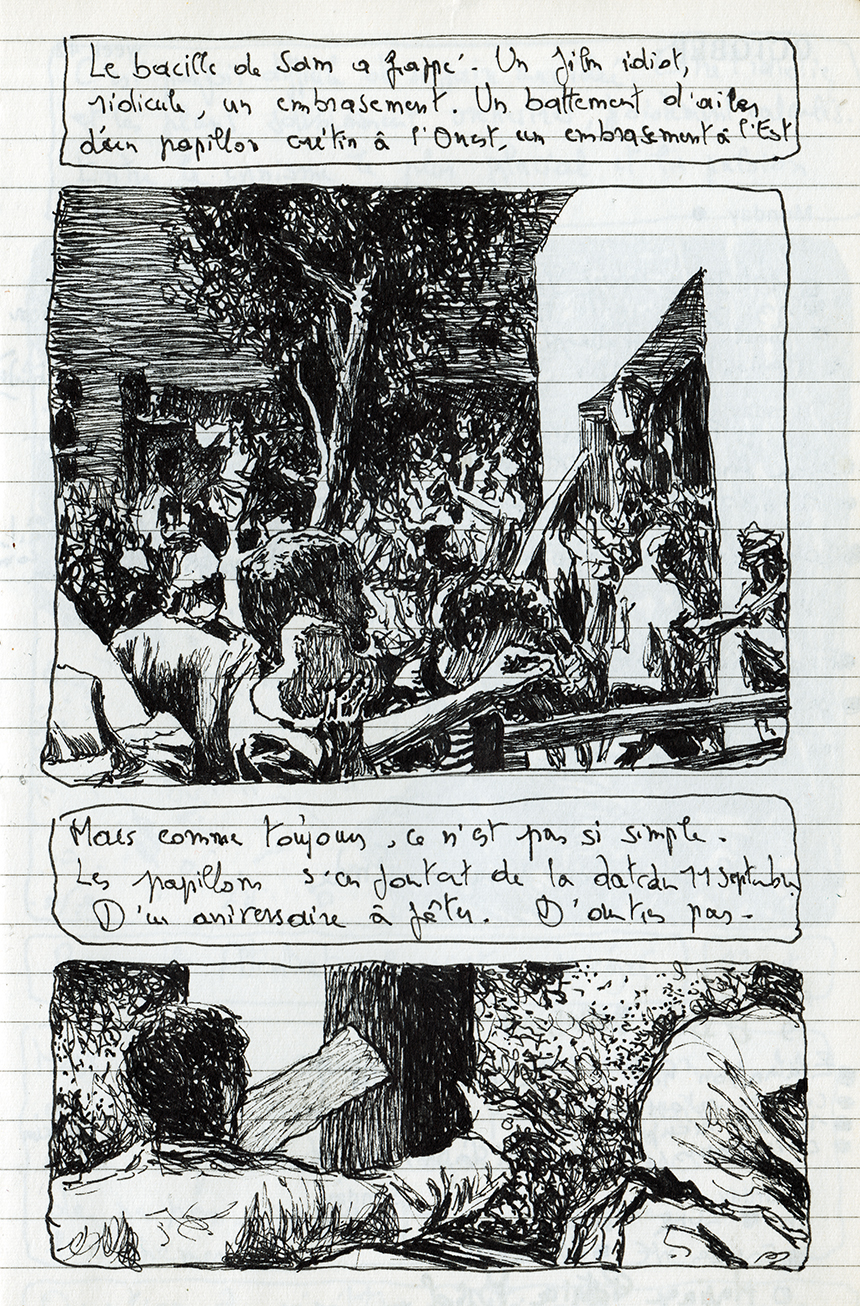 Le bacille de Sam a frappé. Un film idiot,
ridicule, un embrasement. Un battement d'ailes
d'un papillon crétin à l'Ouest, un embrasement à l'Est
Mais comme toujours, ce n'est pas si simple.
Les papillons s'en foutent de la date du 11 septembre
D'un aniversaire à fêter. D'autres pas.